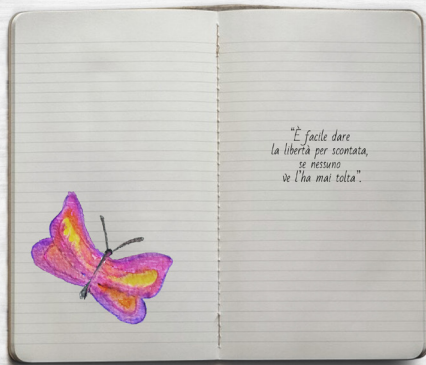 "È facile dare
la libertà per scontata,
se nessuno
ve l'ha mai tolta".